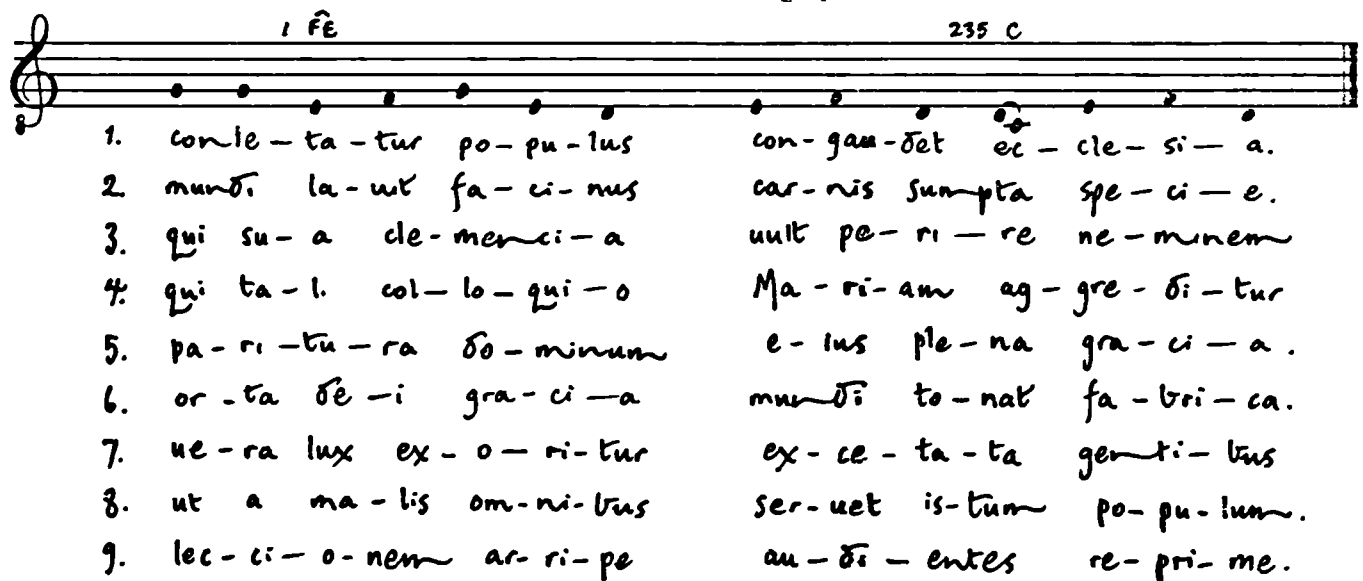 1 FE 235 C
8
1. con-le-ta-tur po-pu-lus con-gau-det ec-cle-si-a.
2 mundi la-uit fa-ci-nus car-nis sumpta spe-ci-e.
3. qui su-a cle-men-ci-a uult pe-ri-re ne-minem
4. qui ta-li col-lo-qui-o Ma-ri-am ag-gre-di-tur
5. pa-ri-tu-ra do-minum e-ius ple-na gra-ci-a.
6. or-ta de-i gra-ci-a mundi to-nat fa-bri-ca.
7. ue-ra lux ex-o-ri-tur ex-ce-ta-ta gen-ti-bus
8. ut a ma-lis om-ni-bus ser-uet is-tum po-pu-lum.
9. lec-ci-o-nem ar-ri-pe au-di-entes re-pri-me.